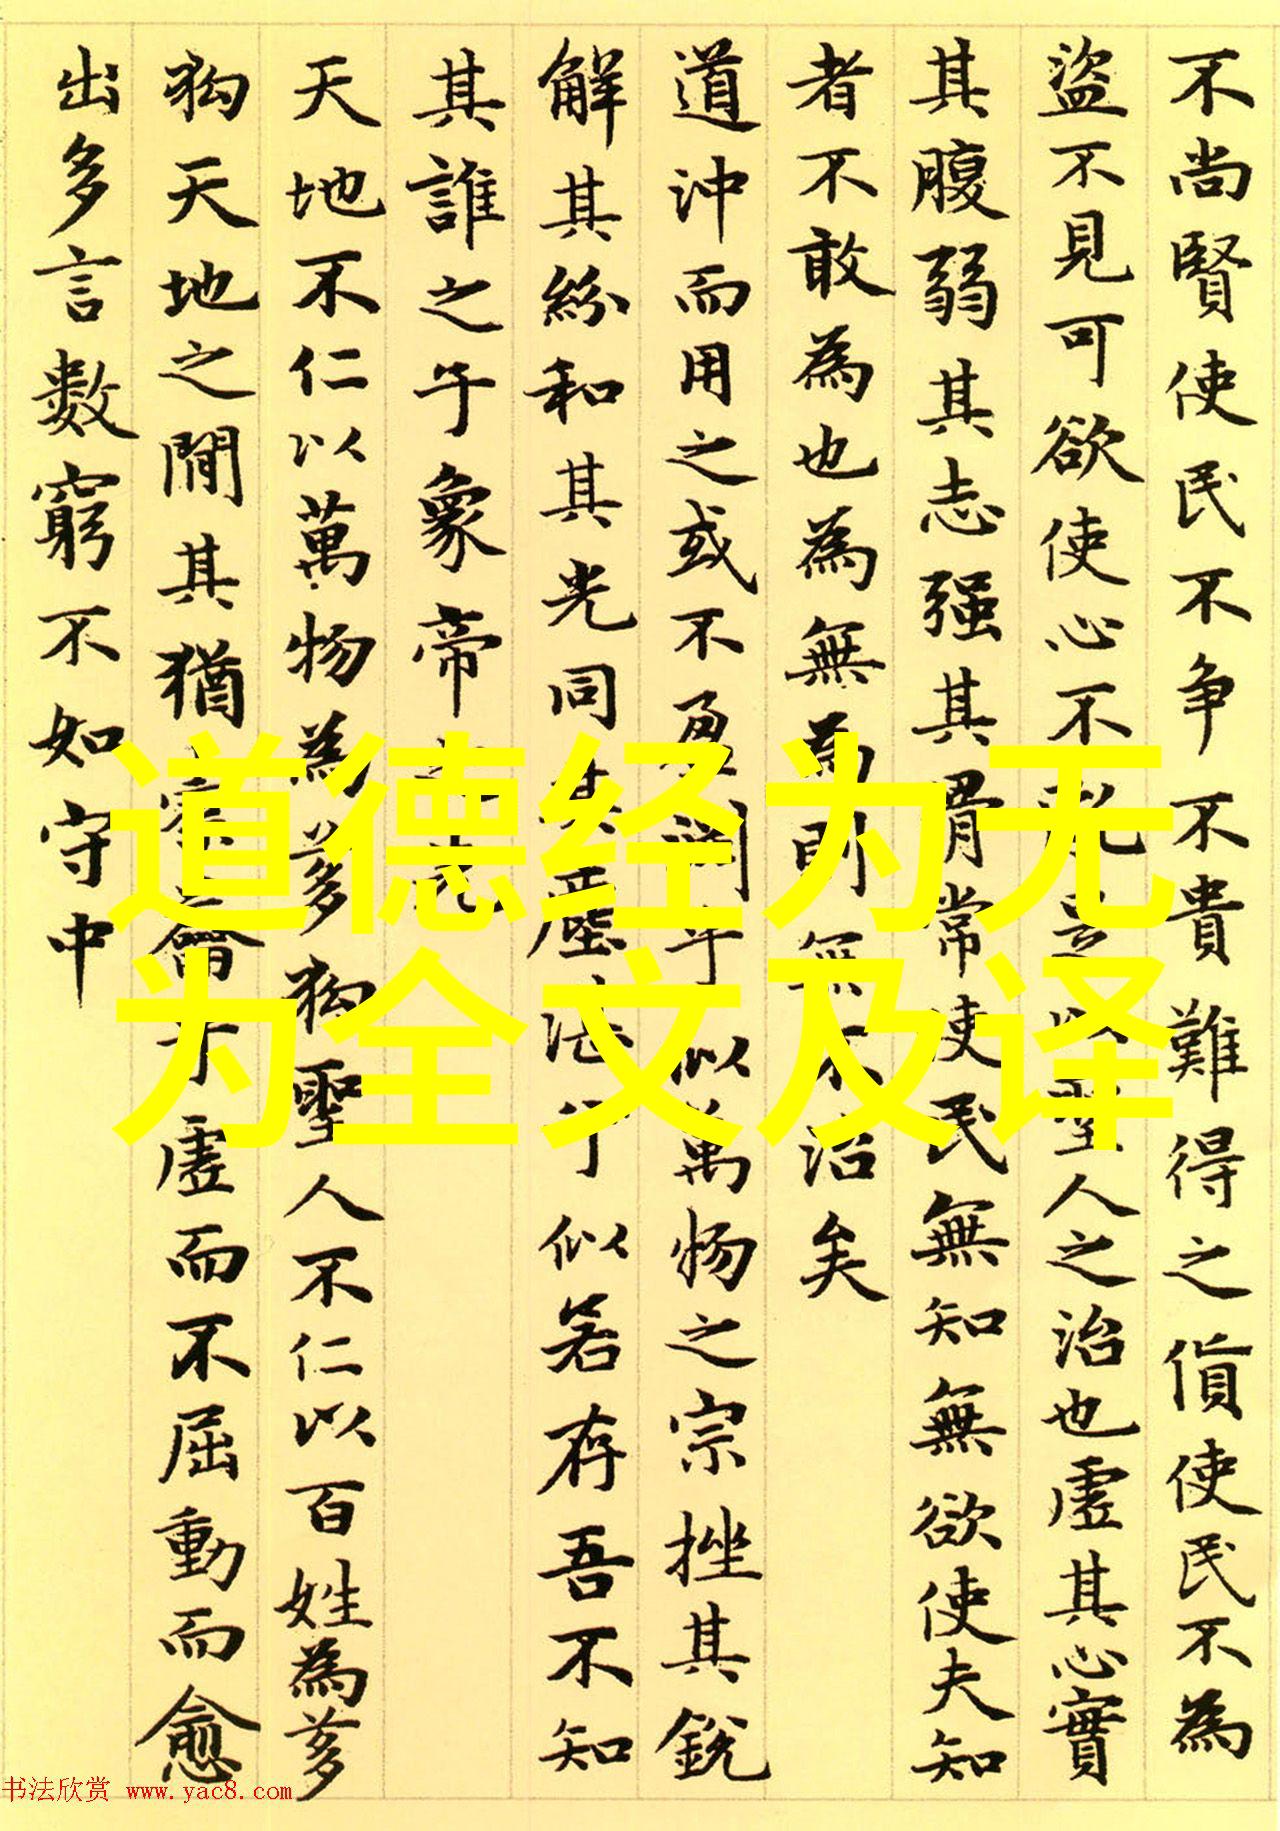 不尚賢使民不争不貴難得之貨使民不為
盜不見可欲使心不亂是以聖人之治也虛其心實
其腹弱其志强其骨常使民無知無欲使夫知
者不敢為也為無為則無不治矣
道沖而用之或不盈淵乎似萬物之宗挫其銳
解其紛和其光同其塵湛兮似若存吾不知
其誰之子象帝之先
天地不仁以萬物為芻狗聖人不仁以百姓為芻
狗天地之間其猶橐籥乎虛而不屈動而愈
出多言數窮不如守中
道德经为无
为全文及译
书法欣赏 www.yac8.com